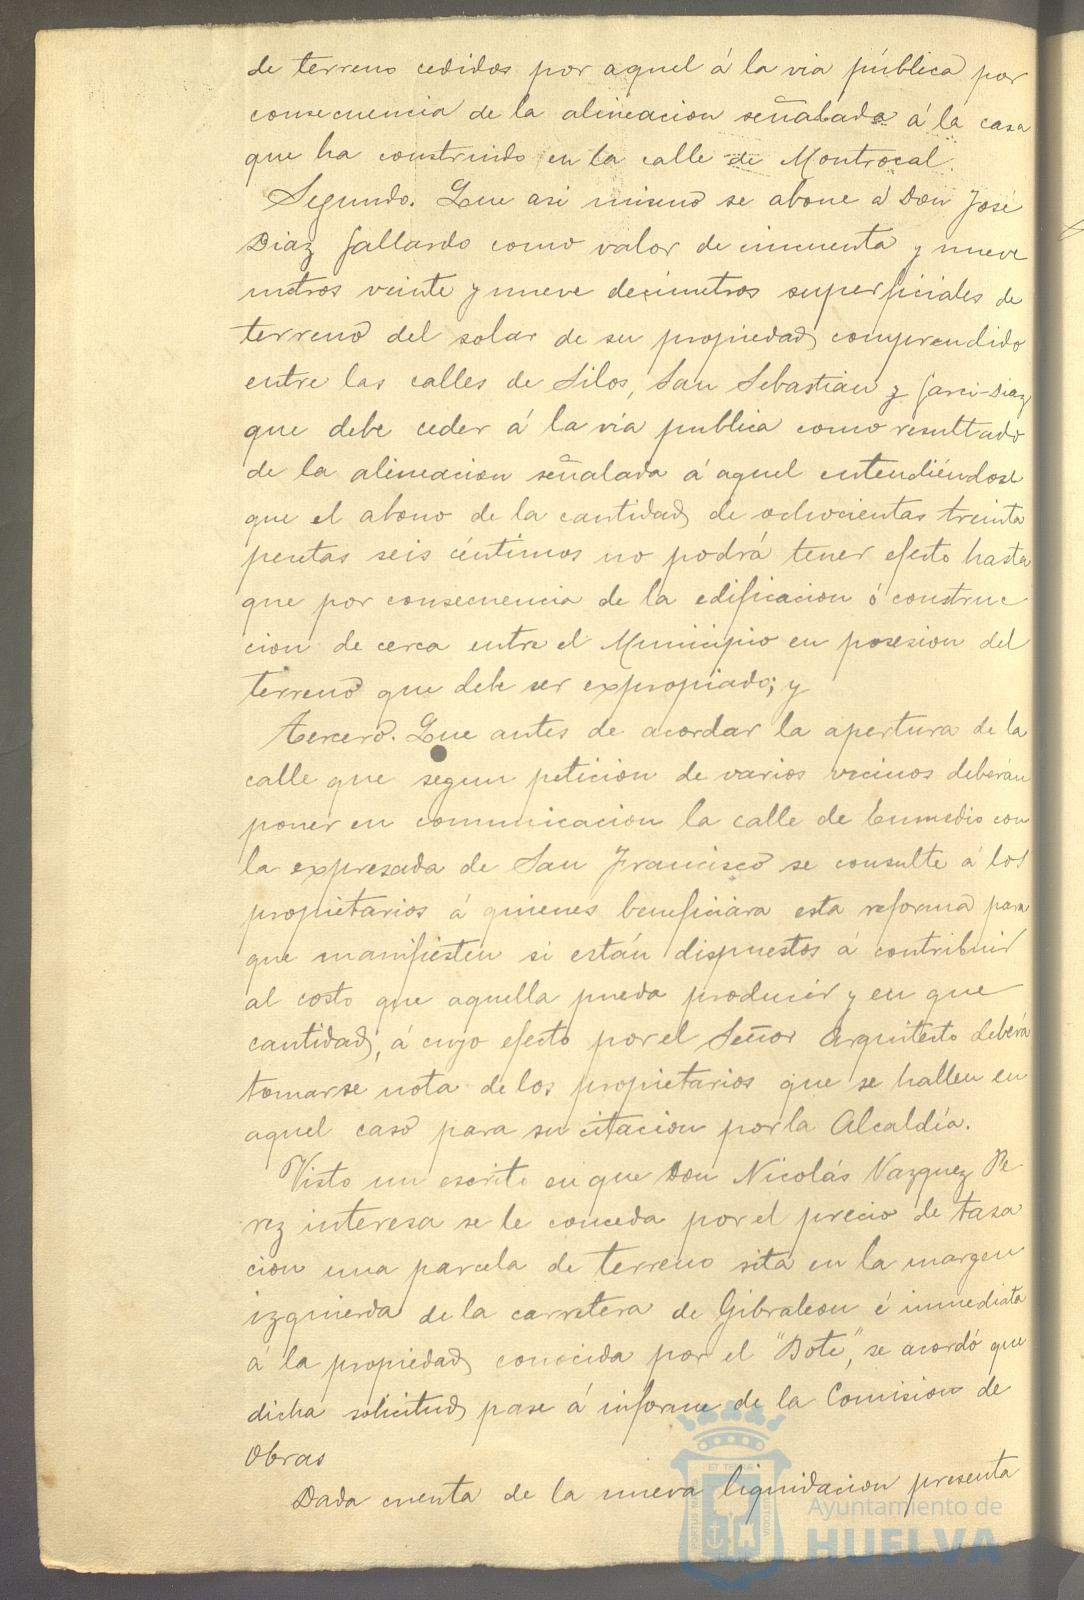 de terreno cedidos por aquel á la via pública por
consecuencia de la alineacion señalada á la casa
que ha construido en la calle de Montrocal.
Segundo. Que asi mismo se abone á Don José
Diaz Gallardo como valor de cincuenta y nueve
metros veinte y nueve decimetros superficiales de
terreno del solar de su propiedad comprendido
entre las calles de Silos, San Sebastian y Garci-Diaz
que debe ceder á la via publica como resultado
de la alineacion señalada á aquel entendiéndose
que el abono de la cantidad de ochocientas treinta
pesetas seis céntimos no podrá tener efecto hasta
que por consecuencia de la edificacion ó construc
cion de cerca entre el Municipio en posesion del
terreno que debe ser expropiado; y
Tercero. Que antes de acordar la apertura de la
calle que segun peticion de varios vecinos deberán
poner en comunicacion la calle de Enmedio con
la expresada de San Francisco se consulte á los
propietarios á quienes beneficiara esta reforma para
que manifiesten si están dispuestos á contribuir
al costo que aquella pueda producir y en que
cantidad, á cuyo efecto por el Señor Arquitecto deberá
tomarse nota de los propietarios que se hallen en
aquel caso para su citacion por la Alcaldía.
Visto un escrito en que Don Nicolás Vazquez Pe
rez interesa se le conceda por el precio de tasa
cion una parcela de terreno sita en la margen
izquierda de la carretera de Gibraleon é inmediata
á la propiedad conocida por el "Bote", se acordó que
dicha solicitud pase á informe de la Comision de
Obras
Dada cuenta de la nueva liquidacion presenta
PORTUS MARIS
ET TERRÆ
CUSTODIA
Ayuntamiento de
HUELVA